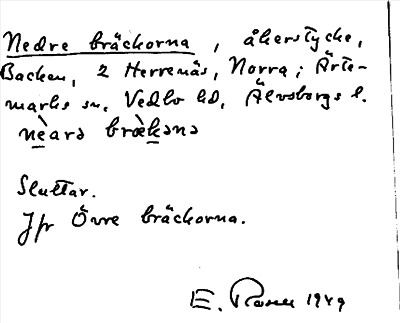 Nedre bräckorna, åkerstycke,
Backen, 2 Herrenäs, Norra; Ärte-
marks sn, Vedbo hd, Älvsborgs l.
nèarə bræ̀kənə
Sluttar.
Jfr Övre bräckorna.
E. 1949